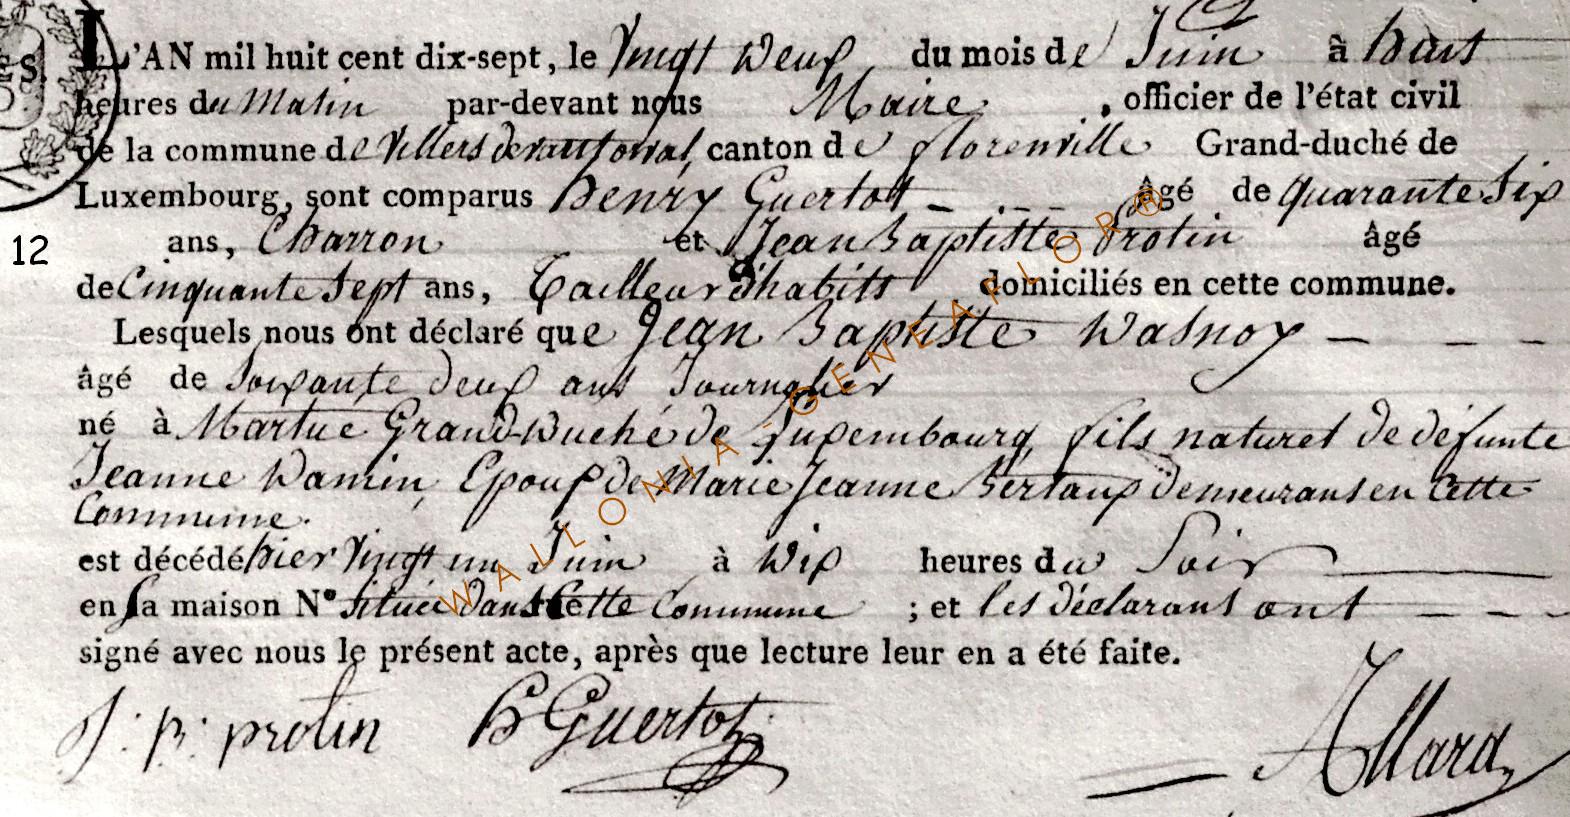 L'AN mil huit cent dix-sept, le Vingt Deux du mois de Juin à huit
heures du Matin par-devant nous Maire, officier de l'état civil
de la commune de Villers devant orval, canton de florenville Grand-duché de
Luxembourg, sont comparus henry Guertot - - - - âgé de quarante Six
12
ans, Charron et Jean Baptiste Protin âgé
de Cinquante Sept ans, Tailleur d'habits domiciliés en cette commune.
Lesquels nous ont déclaré que Jean Baptiste Wasnoy - - - -
âgé de Soixante deux ans Journalier
né à Martue Grand-Duché de Luxembourg, fils naturel de défunte
Jeanne Damin, Epoux de Marie Jeanne Bertaux demeurans en Cette
Commune.
est décédé hier Vingt un Juin à Dix heures du Soir
en Sa maison N° Située dans Cette Commune ; et les déclarans ont - - -
signé avec nous le présent acte, après que lecture leur en a été faite.
J: B: protin h Guertot Allard
WALLONIA-GENEAFLOR®